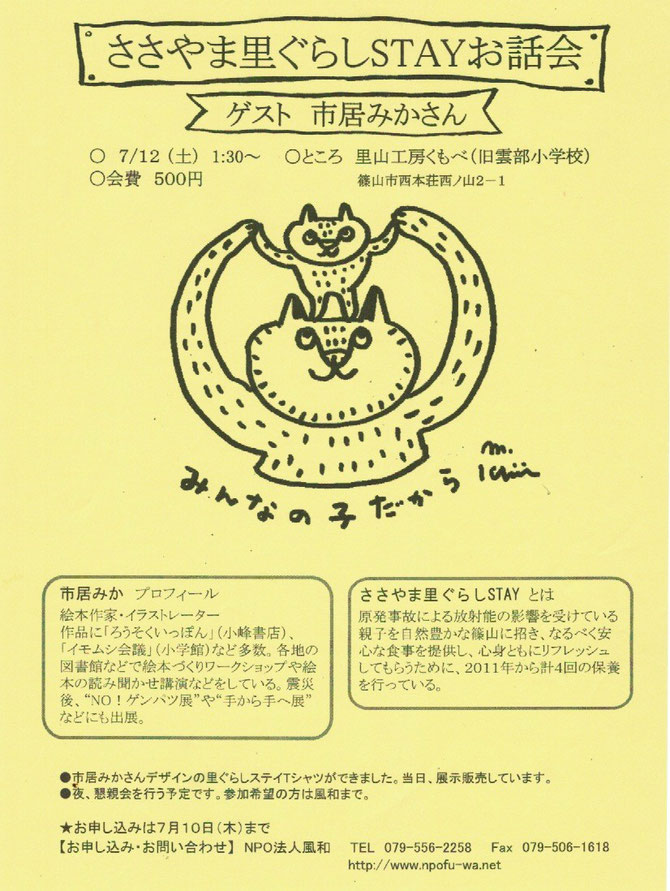 ささやま里ぐらしSTAYお話会
ゲスト 市居みかさん
○ 7/12（土） 1:30～ ○ところ 里山工房くもべ（旧雲部小学校）
○会費 500円 篠山市西本荘西ノ山2－1
みんなの子だから
m. Ichii
市居みか プロフィール
絵本作家・イラストレーター
作品に「ろうそくいっぽん」（小峰書店）、
「イモムシ会議」（小学館）など多数。各地の
図書館などで絵本づくりワークショップや絵
本の読み聞かせ講演などをしている。震災
後、“NO！ゲンパツ展”や“手から手へ展”
などにも出展。
ささやま里ぐらしSTAY とは
原発事故による放射能の影響を受けている
親子を自然豊かな篠山に招き、なるべく安
心な食事を提供し、心身ともにリフレッシュ
してもらうために、2011年から計4回の保養
を行っている。
●市居みかさんデザインの里ぐらしステイTシャツができました。当日、展示販売しています。
●夜、懇親会を行う予定です。参加希望の方は風和まで。
★お申し込みは7月10日（木）まで
【お申し込み・お問い合わせ】 NPO法人風和 TEL 079-556-2258 Fax 079-506-1618
http://www.npofu-wa.net